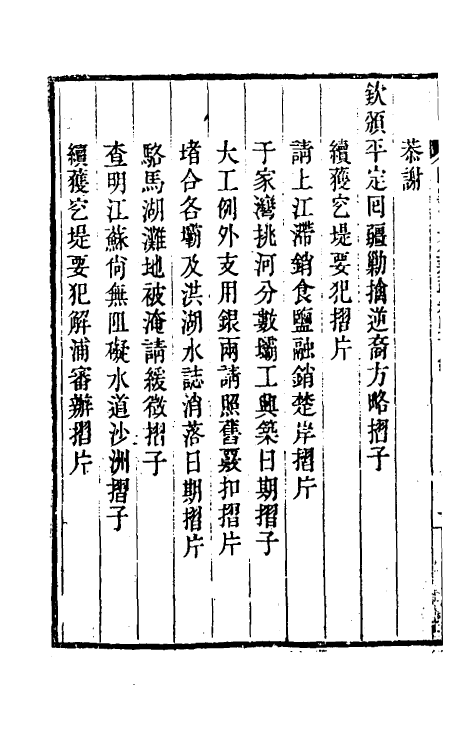 恭謝
欽頒平定囘疆勦擒逆裔方略摺子
續獲空堤要犯摺片
請上江滯銷食鹽融銷楚岸摺片
于家灣挑河分數壩工興築日期摺子
大工例外支用銀兩請照舊覈扣摺片
堵合各壩及洪湖水誌消落日期摺片
駱馬湖灘地被淹請緩徵摺子
查明江蘇尙無阻礙水道沙洲摺子
續獲空堤要犯解浦審辦摺片